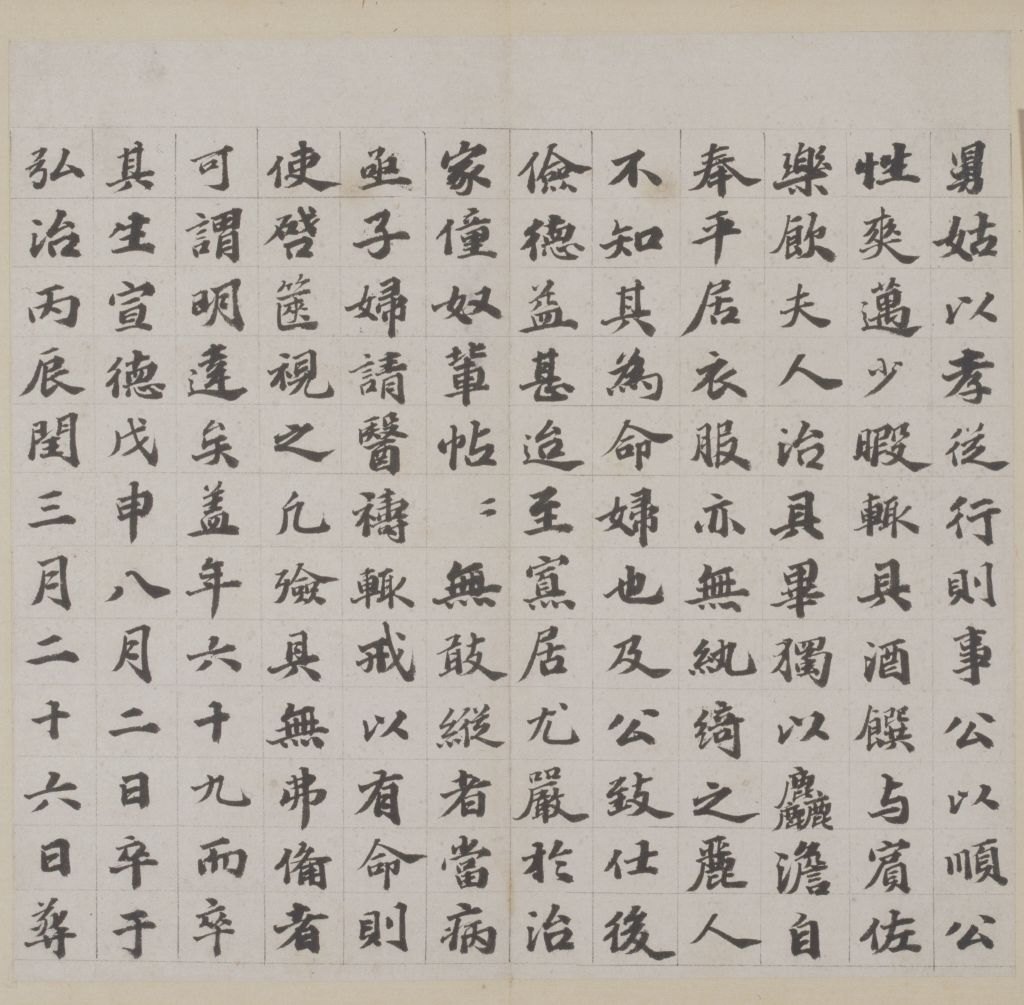 舅姑以孝從行則事公以順公
性爽邁少暇輒具酒饌与賓佐
樂飲夫人治具畢獨以麤澹自
奉平居衣服亦無紈綺之麗人
不知其為命婦也及公致仕後
儉德益甚迨至寡居尤嚴於治
家僮奴輩帖〻無敢縱者當病
亟子婦請醫禱輒戒以有命則
使啓篋視之凡殮具無弗備者
可謂明達矣盖年六十九而卒
其生宣德戊申八月二日卒于
弘治丙辰閏三月二十六日葬